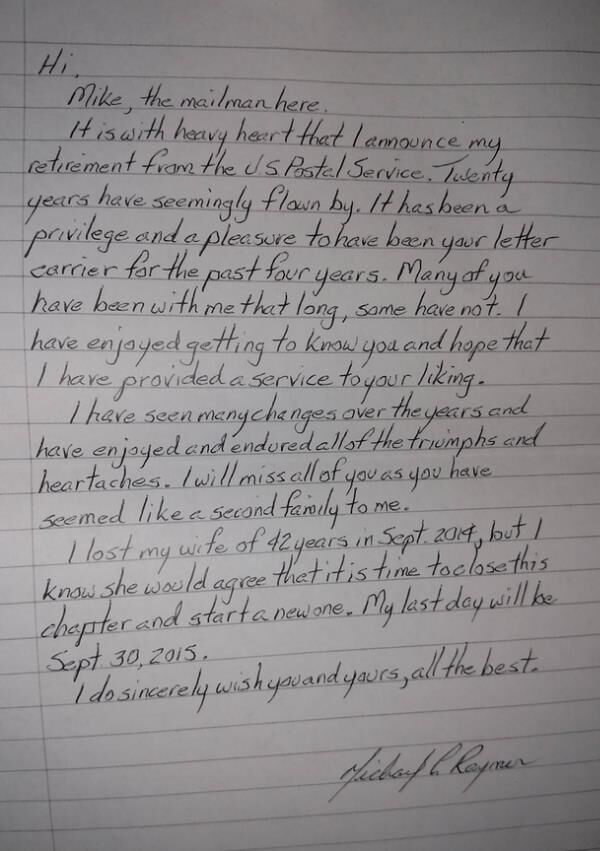 Hi,
Mike, the mailman here.
It is with heavy heart that I announce my
retirement from the US Postal Service. Twenty
years have seemingly flown by. It has been a
privilege and a pleasure to have been your letter
carrier for the past four years. Many of you
have been with me that long, some have not. I
have enjoyed getting to know you and hope that
I have provided a service to your liking.
I have seen many changes over the years and
have enjoyed and endured all of the triumphs and
heartaches. I will miss all of you as you have
seemed like a second family to me.
I lost my wife of 42 years in Sept. 2014, but I
know she would agree that it is time to close this
chapter and start a new one. My last day will be
Sept. 30, 2015.
I do sincerely wish you and yours, all the best.
Michael